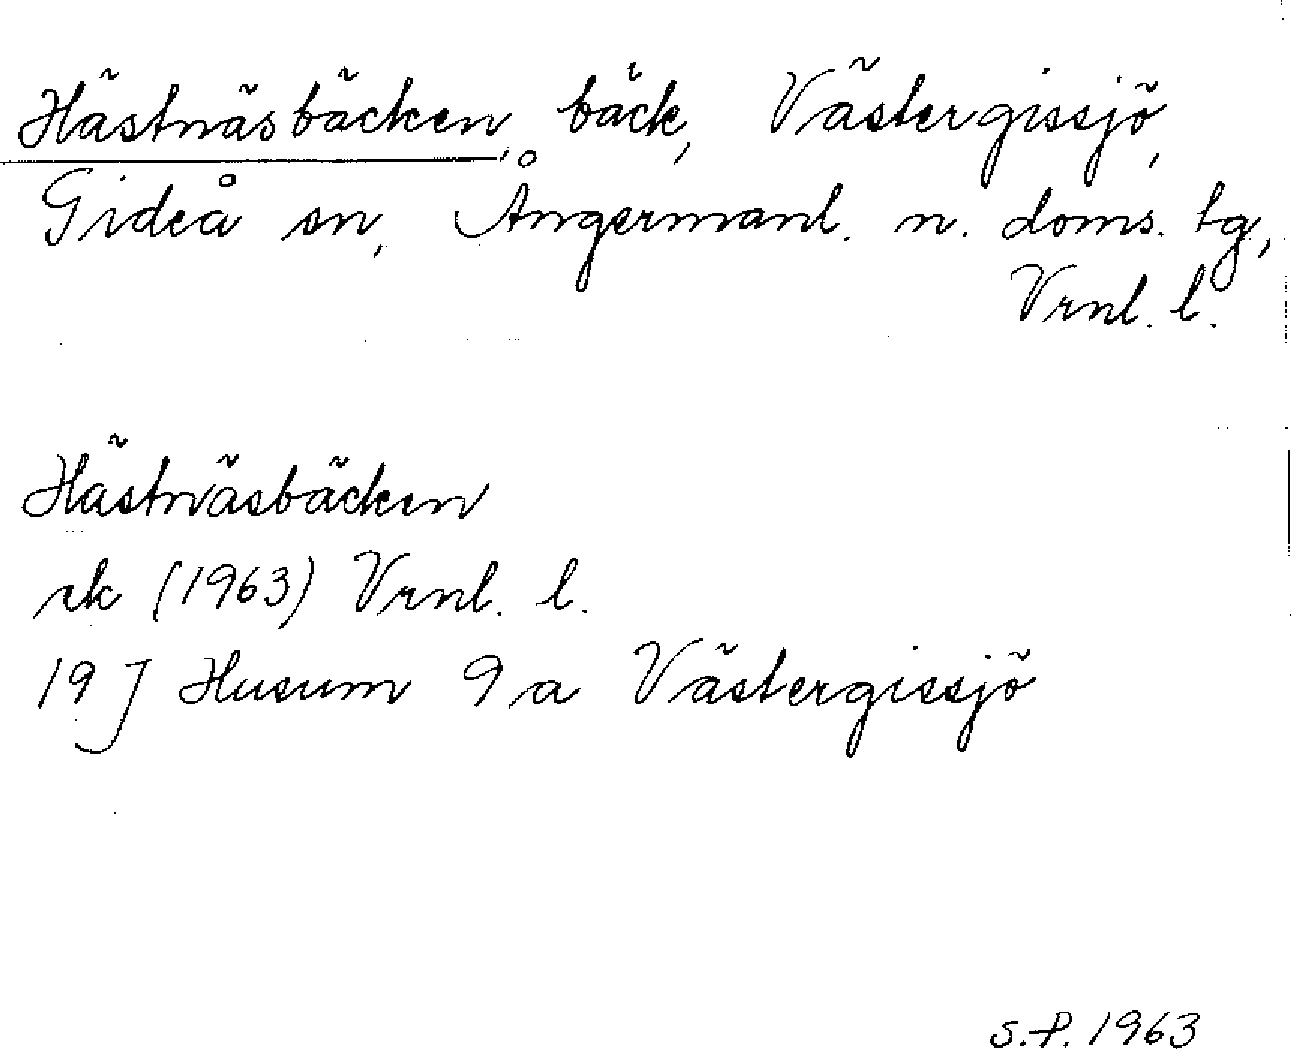 Hästnäsbäcken, bäck, Västergissjö,
Gideå sn, Ångermanl. n. doms. tg,
Vrnl. l.
Hästnäsbäcken
rk (1963) Vrnl. l.
19 J Husum 9 a Västergissjö
S.P. 1963